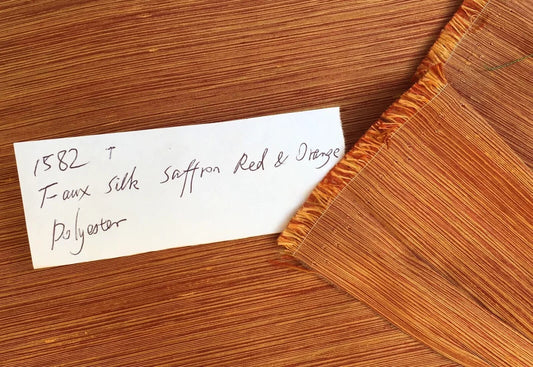 1582 T
Faux silk saffron Red & Orange
Polyester